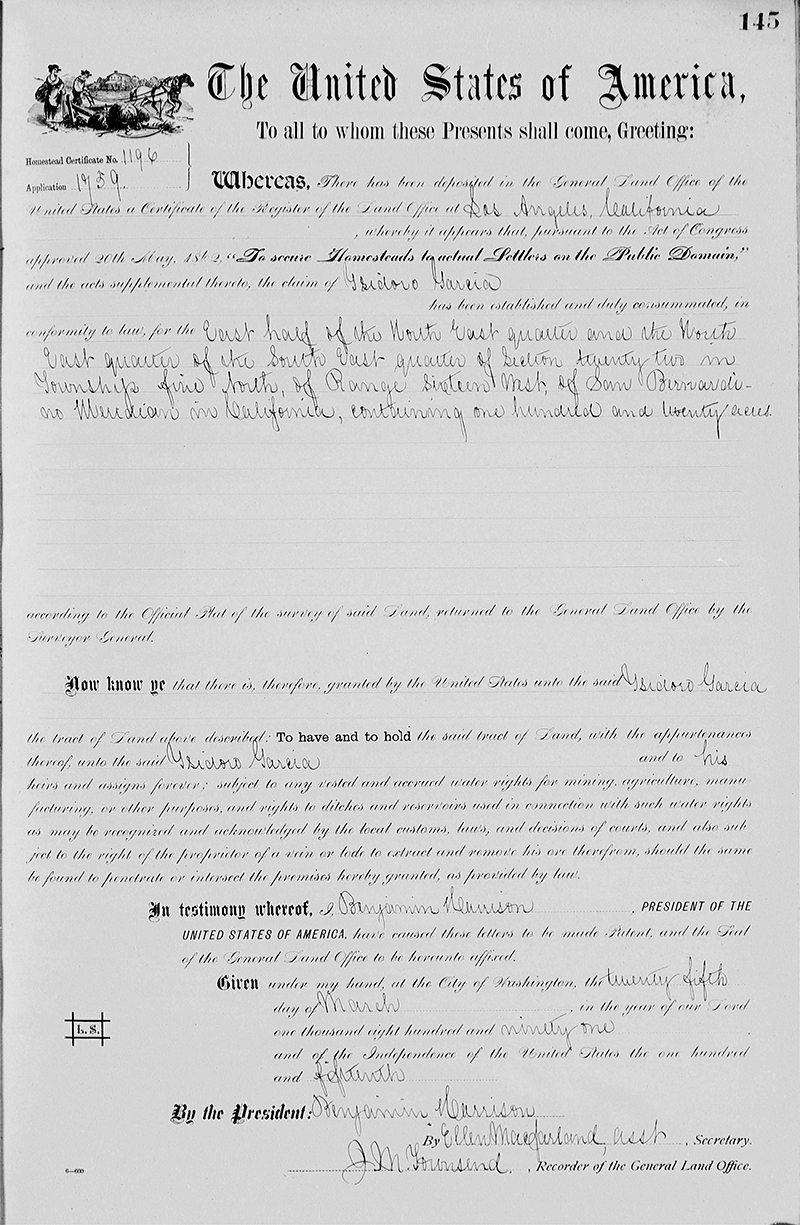 145
The United States of America,
To all to whom these Presents shall come, Greeting:
Homestead Certificate No. 1196
Application 1759
Whereas, There has been deposited in the General Land Office of the
United States a Certificate of the Register of the Land Office at Los Angeles, California
, whereby it appears that, pursuant to the Act of Congress
approved 20th May, 1862, “To secure Homesteads to actual Settlers on the Public Domain,”
and the acts supplemental thereto, the claim of Ysidoro Garcia
has been established and duly consummated, in
conformity to law, for the East half of the North East quarter and the North
East quarter of the South East quarter of Section twenty two in
Township five North, of Range Sixteen West, of San Bernardi-
no Meridian in California, containing one hundred and twenty acres.
according to the Official Plat of the survey of said Land, returned to the General Land Office by the
Surveyor General.
Now know ye that there is, therefore, granted by the United States unto the said Ysidoro Garcia
the tract of Land above described: To have and to hold the said tract of Land, with the appurtenances
thereof, unto the said Ysidoro Garcia and to his
heirs and assigns forever; subject to any vested and accrued water rights for mining, agriculture, manu
facturing, or other purposes, and rights to ditches and reservoirs used in connection with such water rights
as may be recognized and acknowledged by the local customs, laws, and decisions of courts, and also sub
ject to the right of the proprietor of a vein or lode to extract and remove his ore therefrom, should the same
be found to penetrate or intersect the premises hereby granted, as provided by law.
In testimony whereof, I, Benjamin Harrison, PRESIDENT OF THE
UNITED STATES OF AMERICA, have caused these letters to be made Patent, and the Seal
of the General Land Office to be hereunto affixed.
Given under my hand, at the City of Washington, the twenty fifth
day of March, in the year of our Lord
one thousand eight hundred and ninety one
L.S.
and of the Independence of the United States the one hundred
and fifteenth
By the President: Benjamin Harrison
By Ellen Macfarland, asst, Secretary.
J. M. Townsend., Recorder of the General Land Office.